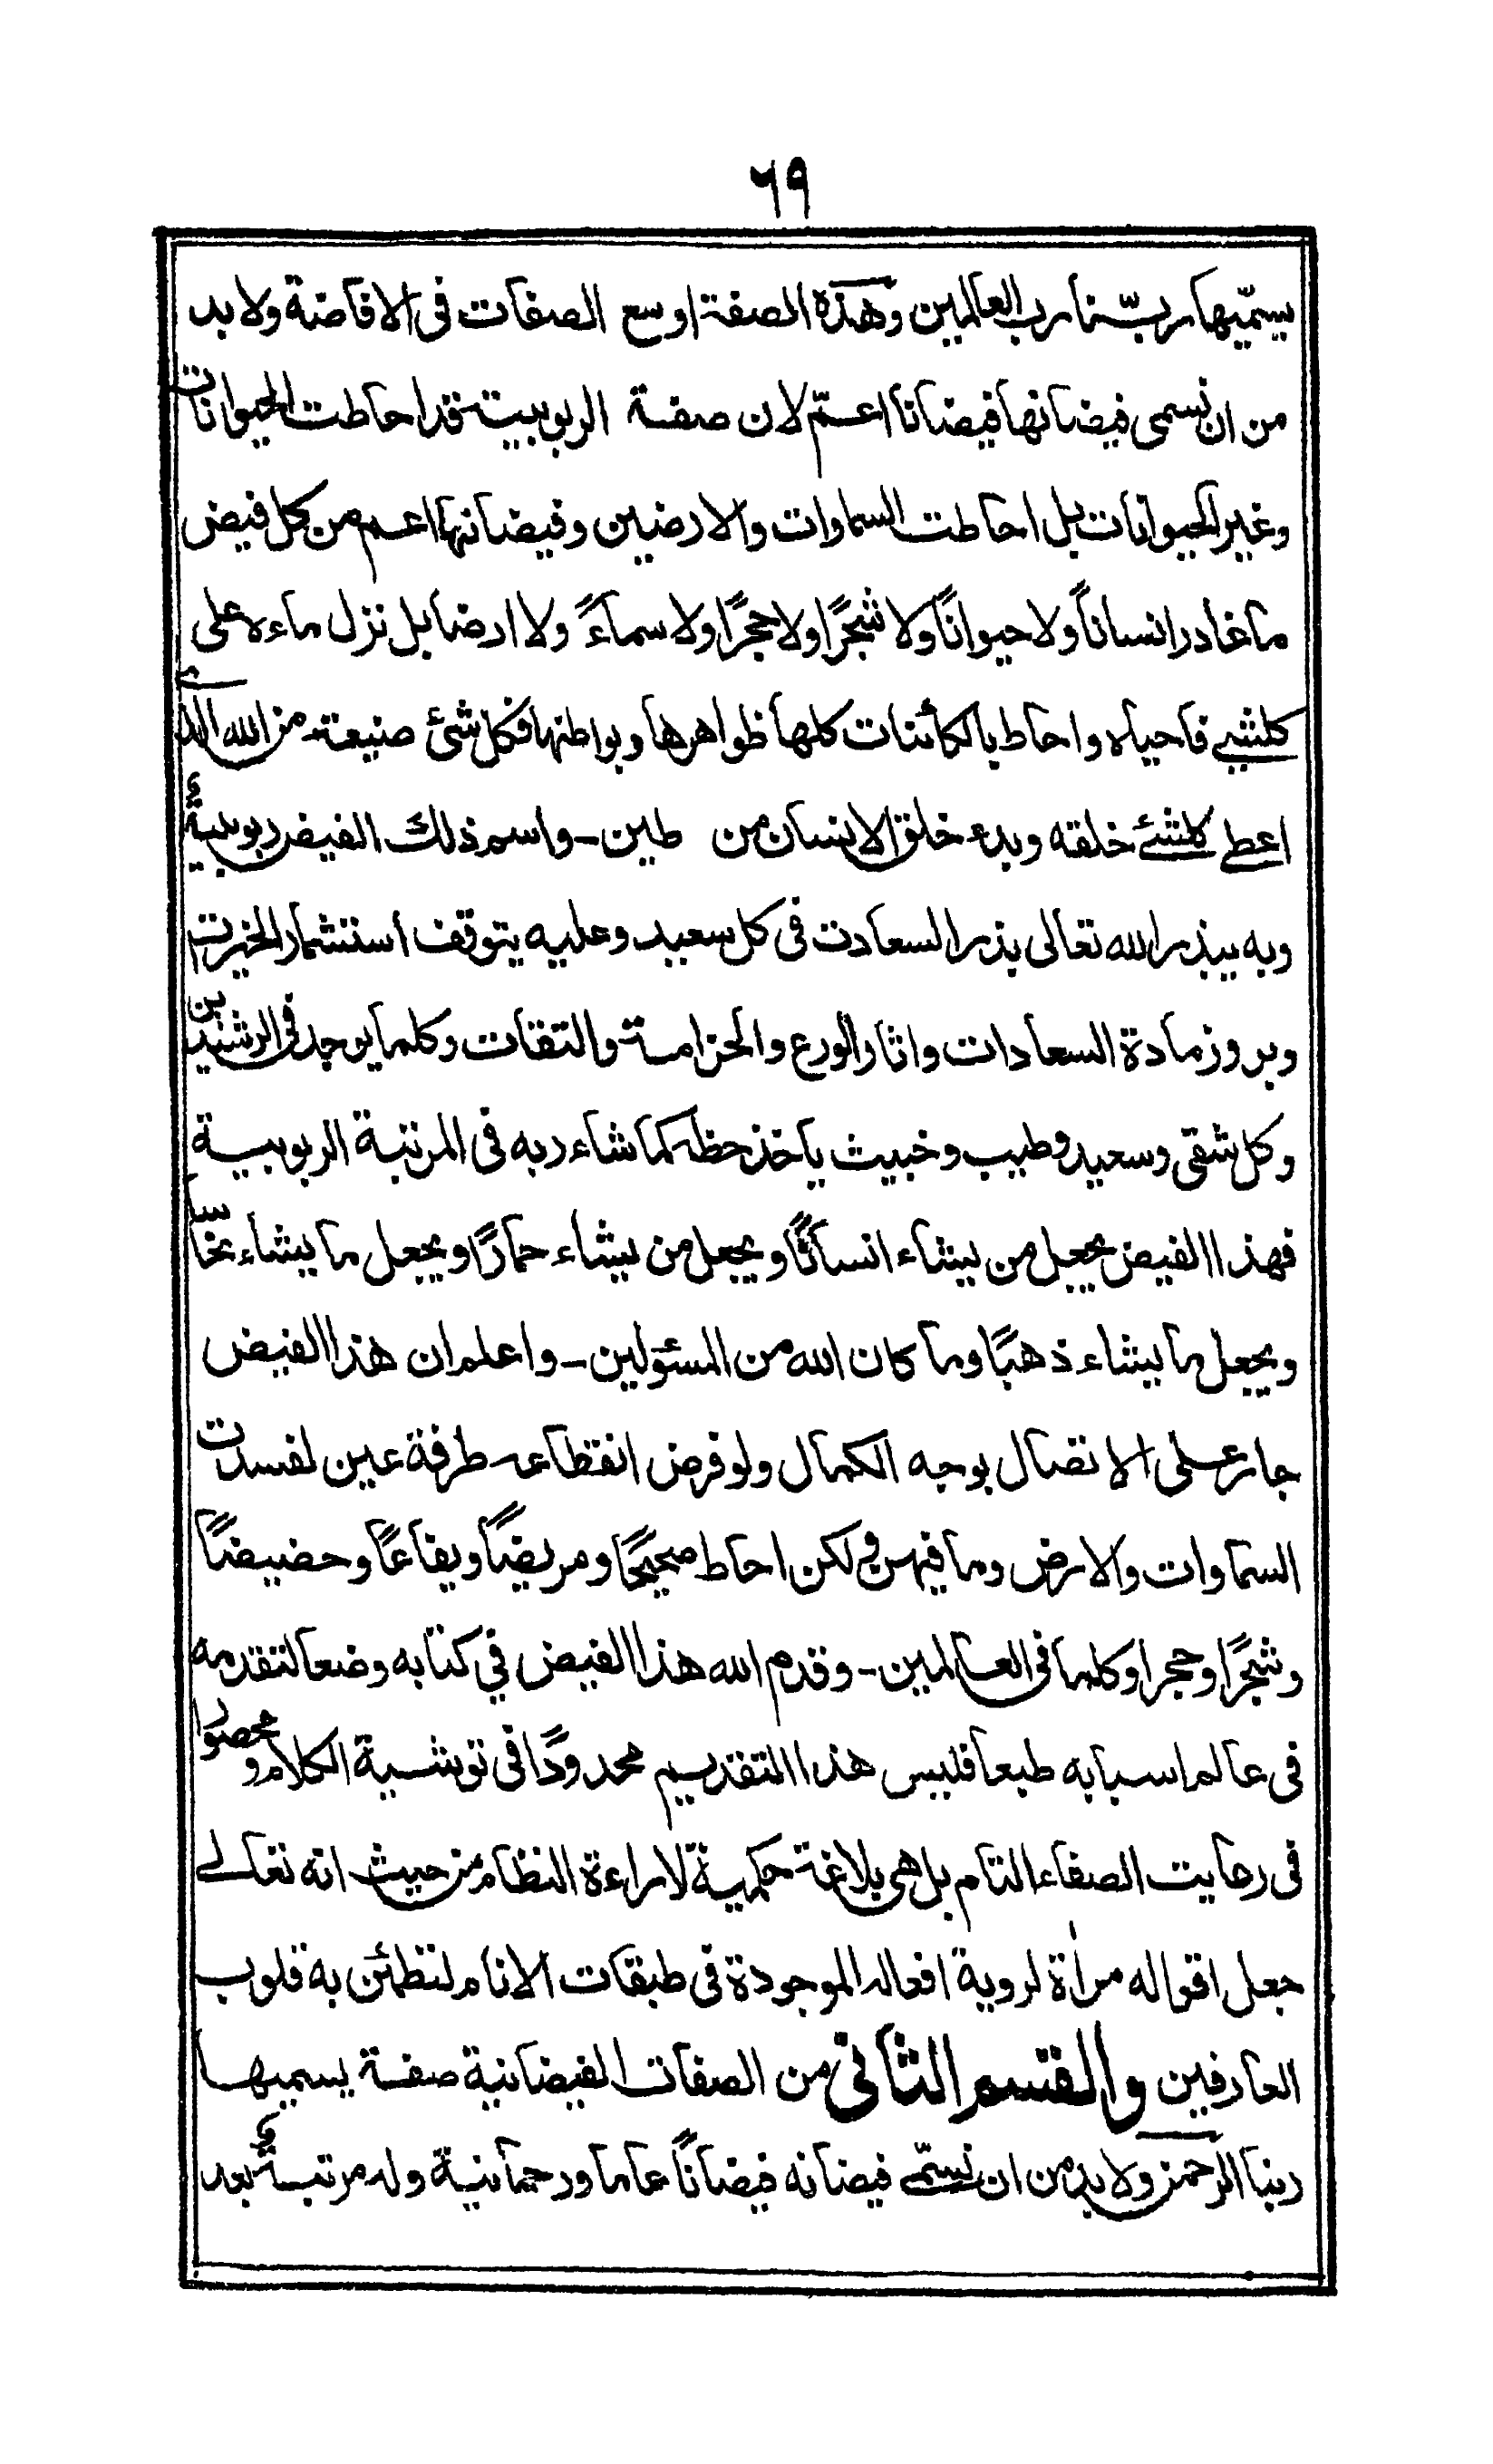 ٦٩
يسمّيها ربّنا رب العالمين وهذه الصفة اوسع الصفات فى الافاضة ولا بد
من ان نسمى فيضانها فيضانا اعمّ لان صفة الربوبيت قد احاطت الحيوانات
وغير الحيوانات بل احاطت السماوات والارضين وفيضانها اعم من كل فيض
ما غادر انساناً ولا حيواناً ولا شجرًا ولا حجرًا ولا سماءً ولا ارضا بل نزل ماءه على
كلشيے فاحياه واحاط بالكائنات كلها ظواهرها وبواطنها فكل شئ صنيعة من الله الذے
اعطے كلشئے خلقه وبدء خلق الانسان من طين - واسم ذلك الفيض ربوبيةٌ
وبه يبذر الله تعالى بذر السعادت فى كل سعيد وعليه يتوقف استثمار الخيرت
وبروز مادة السعادات واثار الورع والحزامة والتقات وكلما يوجد فى الرشيدين
وكل شقى وسعيد وطيب وخبيث ياخذ حظه كما شاء ربه فى المرتبة الربوبية
فهذا الفيض يجعل من يشاء انسانًا ويجعل من يشاء حمارًا ويجعل ما يشاء نحاسا
ويجعل ما يشاء ذهبًا وما كان الله من المسئولين - واعلم ان هذا الفيض
جار على الاتصال بوجه الكمال ولو فرض انقطاعه طرفة عين لفسدت
السماوات والارض وما فيهن ولكن احاط صحيحًا ومريضًا ويفاعًا وحضيضًا
وشجرًا وحجرا وكلما فى العالمين - وقدم الله هذا الفيض في كتابه وضعا لتقدمه
فى عالم اسبابه طبعا فليس هذا التقديم محدودًا فى توشية الكلام ومحصورا
فى رعايت الصفاء التام بل هى بلاغة حكمية لاراءة النظام من حيث انه تعالے
جعل اقواله مراٰة لروية افعاله الموجودة فى طبقات الانام لتطمئن به قلوب
العارفين والقسم الثانى من الصفات الفيضانية صفة يسميها
ربنا الرحمن ولا بد من ان نسمّے فيضانه فيضانًا عاما ورحمانية وله مرتبةٌ بعد